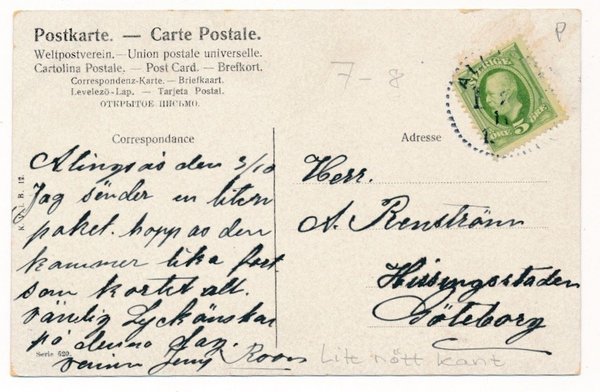 Postkarte. — Carte Postale.
Weltpostverein. — Union postale universelle.
Cartolina Postale. — Post Card. — Brefkort.
Correspondenz-Karte. — Briefkaart.
Levelező-Lap. — Tarjeta Postal.
ОТКРЫТОЕ ПИСЬМО.
P
7-8
AL
SVERIGE
5 ÖRE
Correspondance
Alingsås den 3/10
Jag sender en liten
paket. hoppas den
kommer lika fort
som kortet alt.
vänlig Lyckönskan
på denna dag.
Jenny Roos
Serie 620.
Adresse
Herr.
A. Renström
Hisingsstaden
Göteborg
Lite nött kant